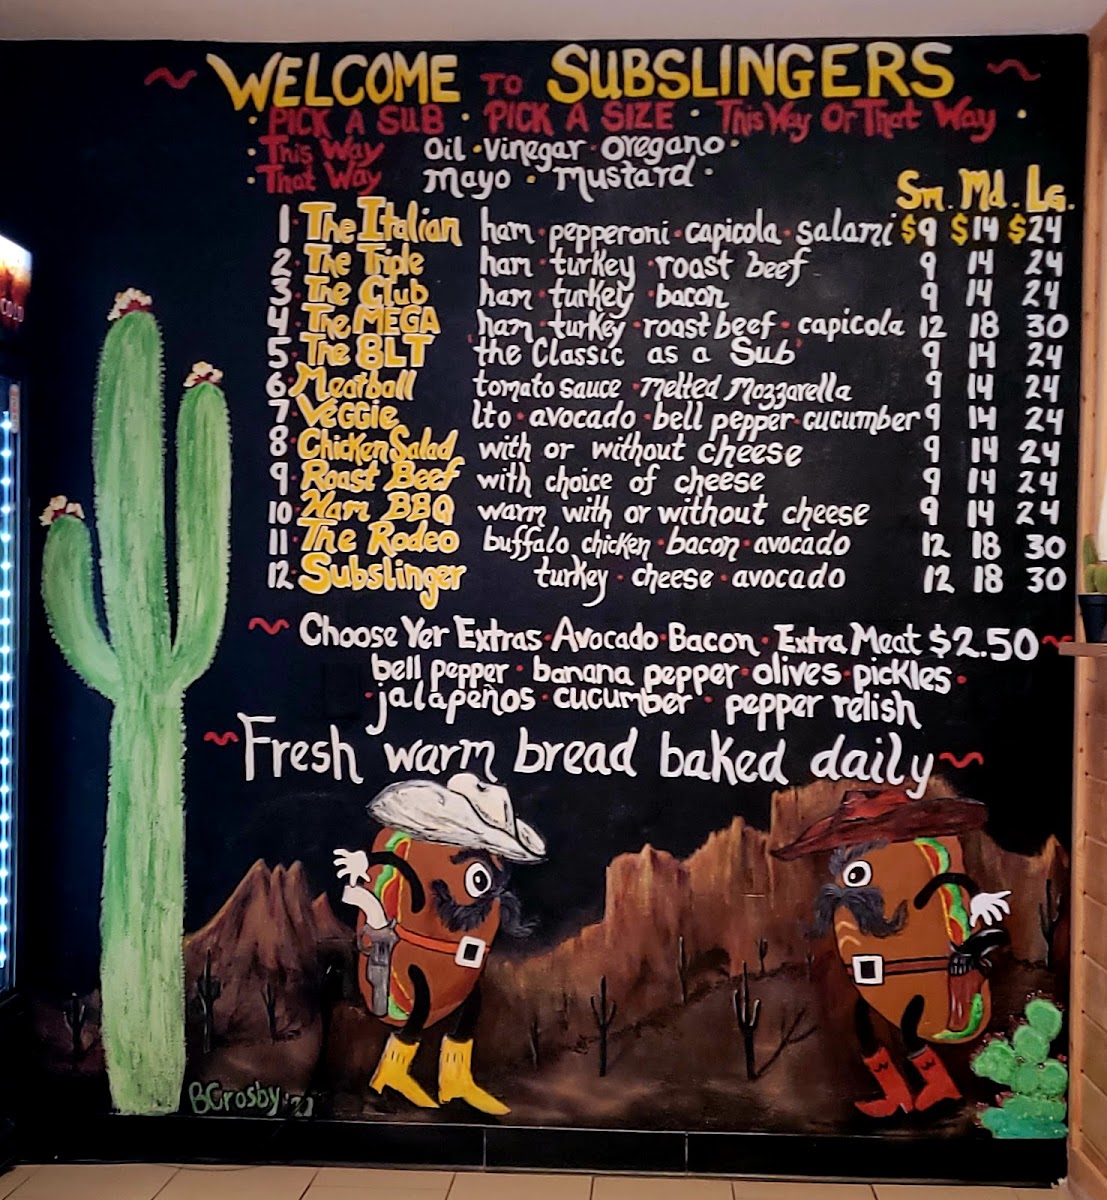 WELCOME TO SUBSLINGERS
· PICK A SUB · PICK A SIZE · This Way Or That Way ·
· This Way Oil · Vinegar · Oregano ·
· That Way Mayo · Mustard ·
Sm. Md. Lg.
1 · The Italian ham · pepperoni · capicola · salami $9 $14 $24
2 · The Triple ham · turkey · roast beef 9 14 24
3 · The Club ham · turkey · bacon 9 14 24
4 · The MEGA ham · turkey · roast beef · capicola 12 18 30
5 · The BLT 'the Classic as a Sub' 9 14 24
6 · Meatball tomato sauce · Melted Mozzarella 9 14 24
7 · Veggie lto · avocado · bell pepper · cucumber 9 14 24
8 · Chicken Salad with or without cheese 9 14 24
9 · Roast Beef with choice of cheese 9 14 24
10 · Ham BBQ warm with or without cheese 9 14 24
11 · The Rodeo buffalo chicken · bacon · avocado 12 18 30
12 · Subslinger turkey · cheese · avocado 12 18 30
~ Choose Yer Extras · Avocado · Bacon · Extra Meat $2.50 ~
bell pepper · banana pepper · olives · pickles ·
· jalapeños · cucumber · pepper relish
~ Fresh warm bread baked daily ~
BCrosby